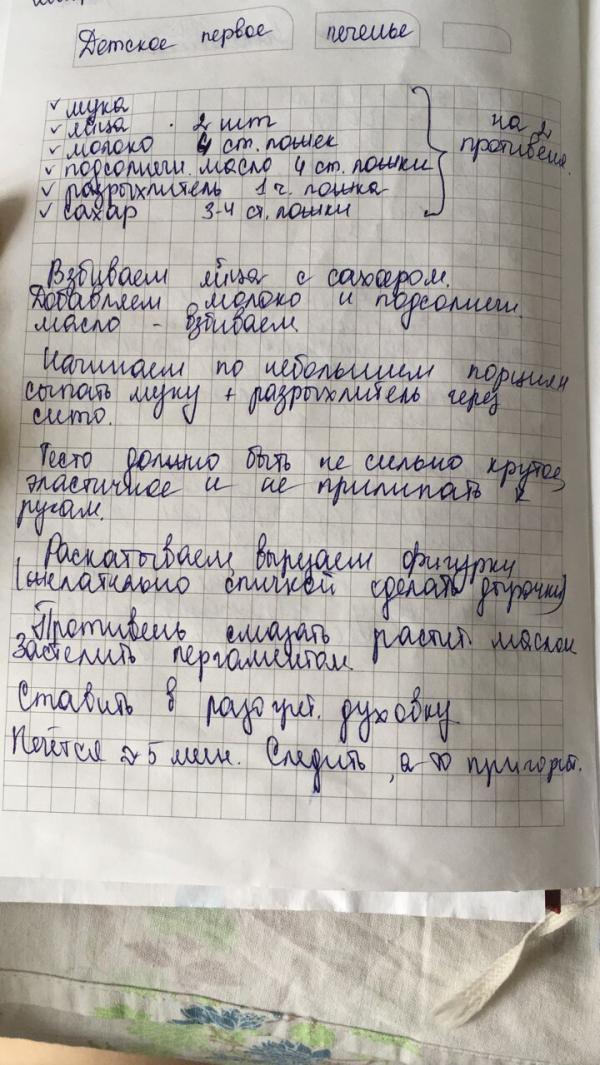 Детское первое печенье
✓ мука
✓ яйца · 2 шт
✓ молоко 4 ст. ложек
✓ подсолнечн. масло 4 ст. ложки
✓ разрыхлитель 1 ч. ложка
✓ сахар 3-4 ст. ложки
на 2
противеня.
Взбиваем яйца с сахаром.
Добавляем молоко и подсолнечн.
масло - взбиваем.
Начинаем по небольшим порциям
сыпать муку + разрыхлитель через
сито.
Тесто должно быть не сильно крутое,
эластичное и не прилипать к
рукам.
Раскатываем, вырезаем фигурки
(желательно спичкой сделать дырочки)
Противень смазать растит. маслом
Застелить пергаментом
Ставить в разогрет. духовку
Печётся ≈ 5 мин. Следить, а то пригорят.